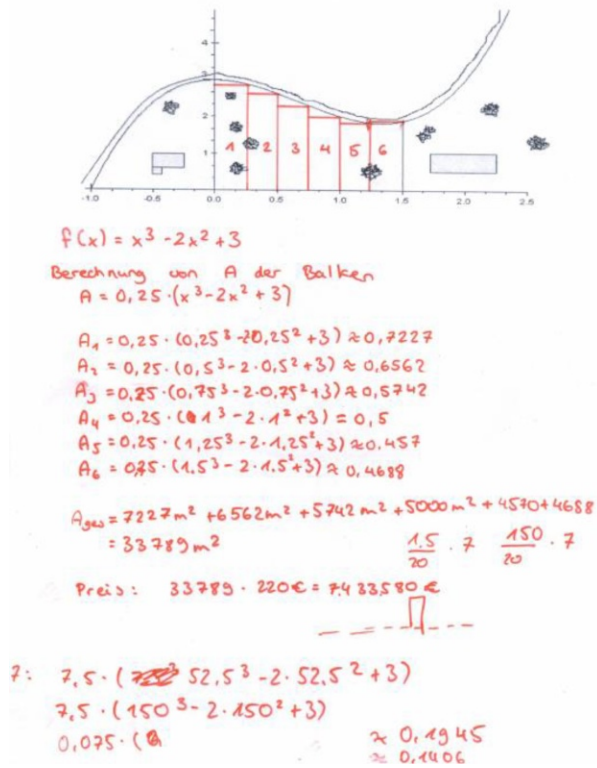 4
3
2
1
1 2 3 4 5 6
-1.0 -0.5 0.0 0.5 1.0 1.5 2.0 2.5
f(x) = x³ -2x² +3
Berechnung von A der Balken
A = 0,25 · (x³ -2x² +3)
A₁ = 0,25 · (0,25³ -20,25² +3) ≈ 0,7227
A₂ = 0,25 · (0,5³ -2·0,5² +3) ≈ 0,6562
A₃ = 0,25 · (0,75³ -2·0,75² +3) ≈ 0,5742
A₄ = 0,25 · (1³ -2·1² +3) = 0,5
A₅ = 0,25 · (1,25³ -2·1,25² +3) ≈ 0,457
A₆ = 0,25 · (1.5³ -2·1.5² +3) ≈ 0,4688
Ages = 7227m² +6562m² +5742m² +5000m² +4570+4688
= 33789m²
1.5/20 · 7 150/20 · 7
Preis: 33789 · 220€ = 7433580 €
7: 7,5 · ( 52,5³ -2·52,5² +3)
7,5 · (150³ -2·150² +3)
0,075 · (
≈ 0,1945
≈ 0,1406